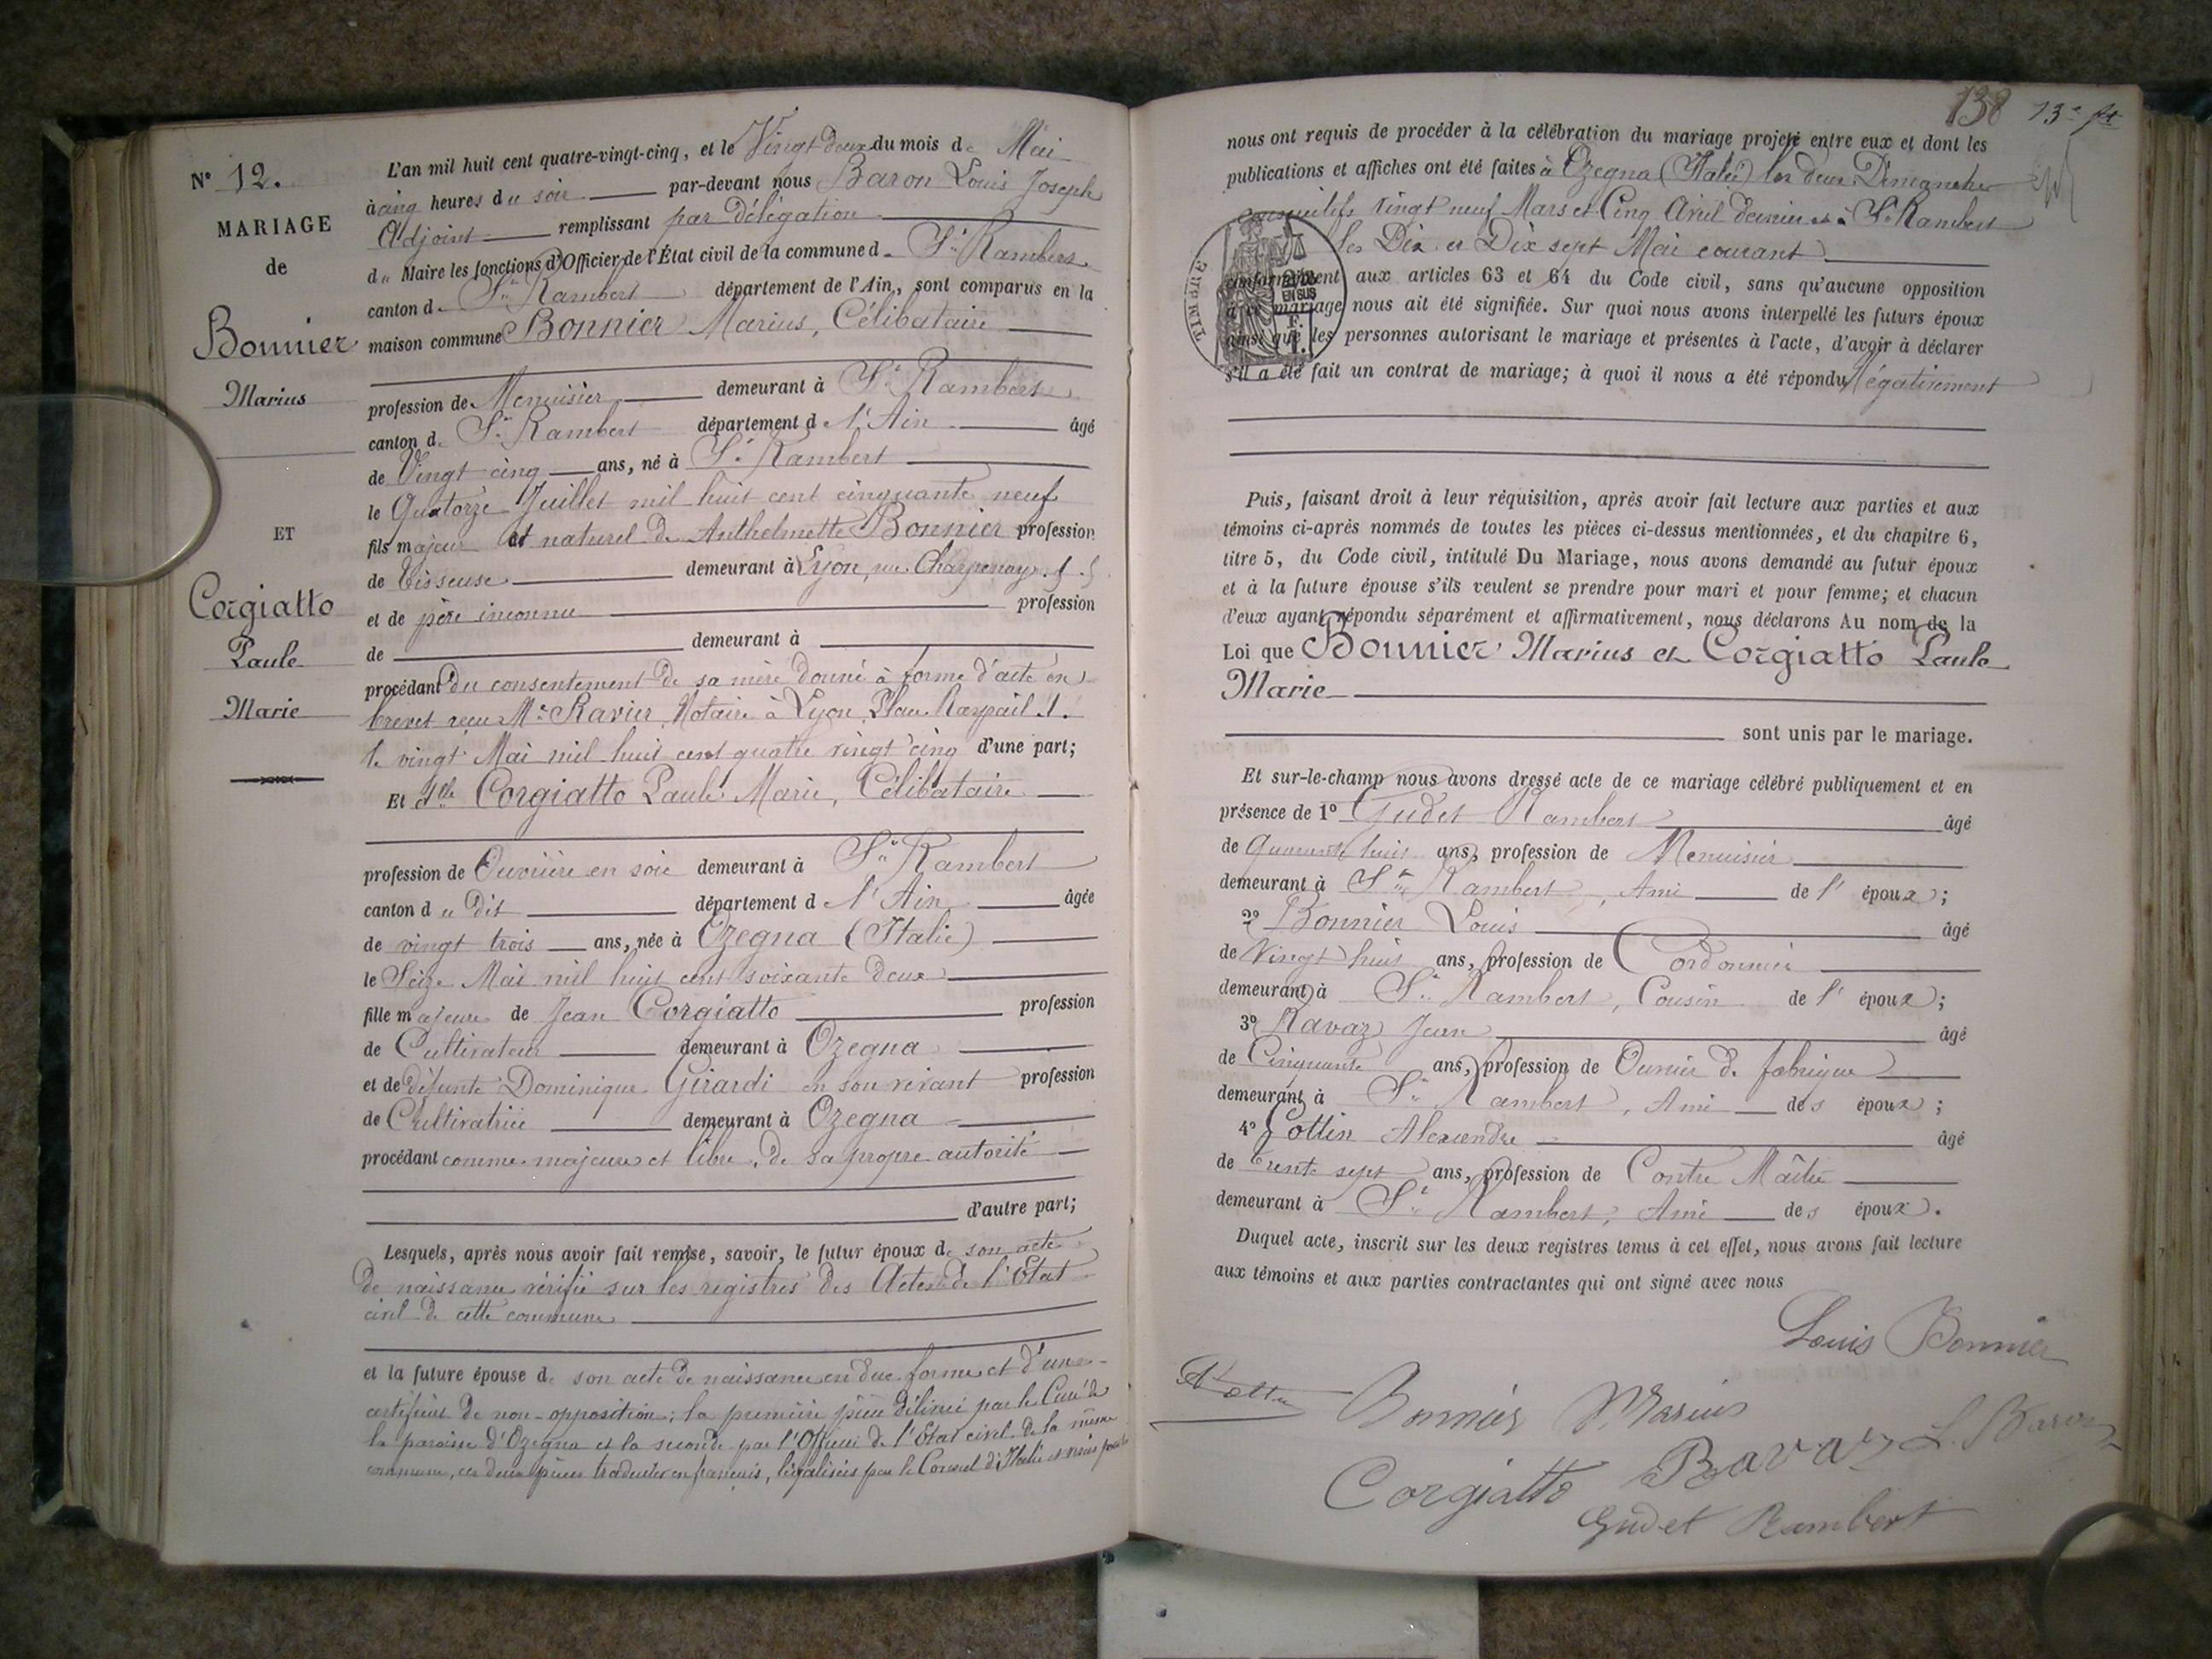 N° 12.
MARIAGE
de
Bonnier
Marius
ET
Corgiatto
Paule
Marie
L'an mil huit cent quatre-vingt-cinq, et le Vingt deux du mois de Mai
à cinq heures du soir par-devant nous Baron Louis Joseph
Adjoint remplissant par délégation
du Maire les fonctions d'Officier de l'État civil de la commune de St Rambert
canton de St Rambert département de l'Ain, sont comparus en la
maison commune Bonnier Marius, Célibataire
profession de Menuisier demeurant à St Rambert
canton de St Rambert département d l'Ain âgé
de Vingt cinq ans, né à St Rambert
le Quatorze Juillet mil huit cent cinquante neuf
fils majeur et naturel de Anthelmette Bonnier profession
de Tisseuse demeurant à Lyon, rue
et de père inconnu profession
de demeurant à
procédant du consentement de sa mère donné à forme d'acte en
brevet reçu Me Ravier, Notaire à Lyon, Place Raspail 1.
le vingt Mai mil huit cent quatre vingt cinq d'une part;
Et Dlle Corgiatto Paule Marie, Célibataire
profession de Ouvrière en soie demeurant à St Rambert
canton du dit département d l'Ain âgée
de vingt trois ans, née à Ozegna (Italie)
le Seize Mai mil huit cent soixante deux
fille majeure de Jean Corgiatto profession
de Cultivateur demeurant à Ozegna
et de défunte Dominique Girardi en son vivant profession
de Cultivatrice demeurant à Ozegna
procédant comme majeure et libre, de sa propre autorité
d'autre part;
Lesquels, après nous avoir fait remise, savoir, le futur époux de son acte
de naissance vérifié sur les registres des Actes de l'Etat
civil de cette commune
et la future épouse de son acte de naissance en due forme et d'une
certificat de non-opposition; la première pièce délivrée par le Curé de
la paroisse d'Ozegna et la seconde par l'Officier de l'Etat civil de la même
commune, ces deux pièces traduites en français, légalisées par le Consul d'Italie et visées
138 13e
nous ont requis de procéder à la célébration du mariage projeté entre eux et dont les
publications et affiches ont été faites à Ozegna (Italie) les deux Dimanches
consécutifs vingt neuf Mars et Cinq Avril dernier et à St Rambert
les Dix et Dix sept Mai courant
TIMBRE
2/10
EN SUS
F.
1.
conformément aux articles 63 et 64 du Code civil, sans qu'aucune opposition
à ce mariage nous ait été signifiée. Sur quoi nous avons interpellé les futurs époux
ainsi que les personnes autorisant le mariage et présentes à l'acte, d'avoir à déclarer
s'il a été fait un contrat de mariage; à quoi il nous a été répondu Négativement
Puis, faisant droit à leur réquisition, après avoir fait lecture aux parties et aux
témoins ci-après nommés de toutes les pièces ci-dessus mentionnées, et du chapitre 6,
titre 5, du Code civil, intitulé Du Mariage, nous avons demandé au futur époux
et à la future épouse s'ils veulent se prendre pour mari et pour femme; et chacun
d'eux ayant répondu séparément et affirmativement, nous déclarons Au nom de la
Loi que Bonnier Marius et Corgiatto Paule
Marie
sont unis par le mariage.
Et sur-le-champ nous avons dressé acte de ce mariage célébré publiquement et en
présence de 1° Gudet Rambert âgé
de quarante huit ans, profession de Menuisier
demeurant à St Rambert, Ami de l'époux;
2° Bonnier Louis âgé
de Vingt huit ans, profession de Cordonnier
demeurant à St Rambert, Cousin de l'époux;
3° Ravaz Jean âgé
de Cinquante ans, profession de Ouvrier de fabrique
demeurant à St Rambert, Ami des époux;
4° Cottin Alexandre âgé
de trente sept ans, profession de Contre Maître
demeurant à St Rambert, Ami des époux.
Duquel acte, inscrit sur les deux registres tenus à cet effet, nous avons fait lecture
aux témoins et aux parties contractantes qui ont signé avec nous
Louis Bonnier
Bonnier Marius
Ravaz L. Baron
Corgiatto
Gudet Rambert